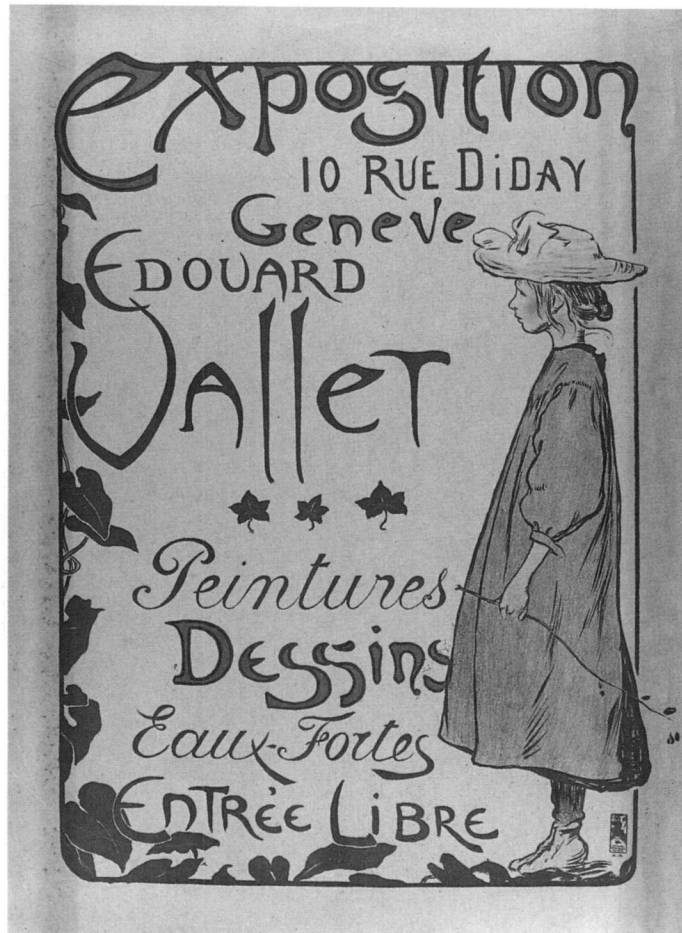 Exposition
10 RUE DiDAY
Geneve
EDOUARD
VALLET
Peintures
Dessins
Eaux-Fortes
ENTRÉE LiBRE